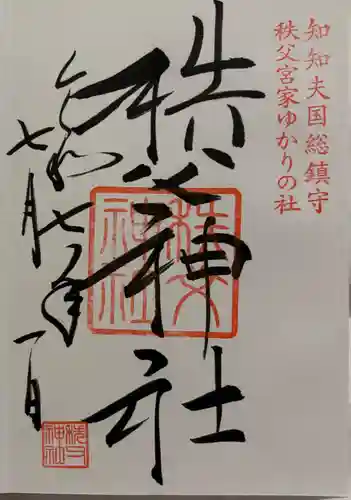 知知夫国総鎮守
秩父宮家ゆかりの社
秩父神社
令和七年
七月一日
秩父
神社
秩父
神社